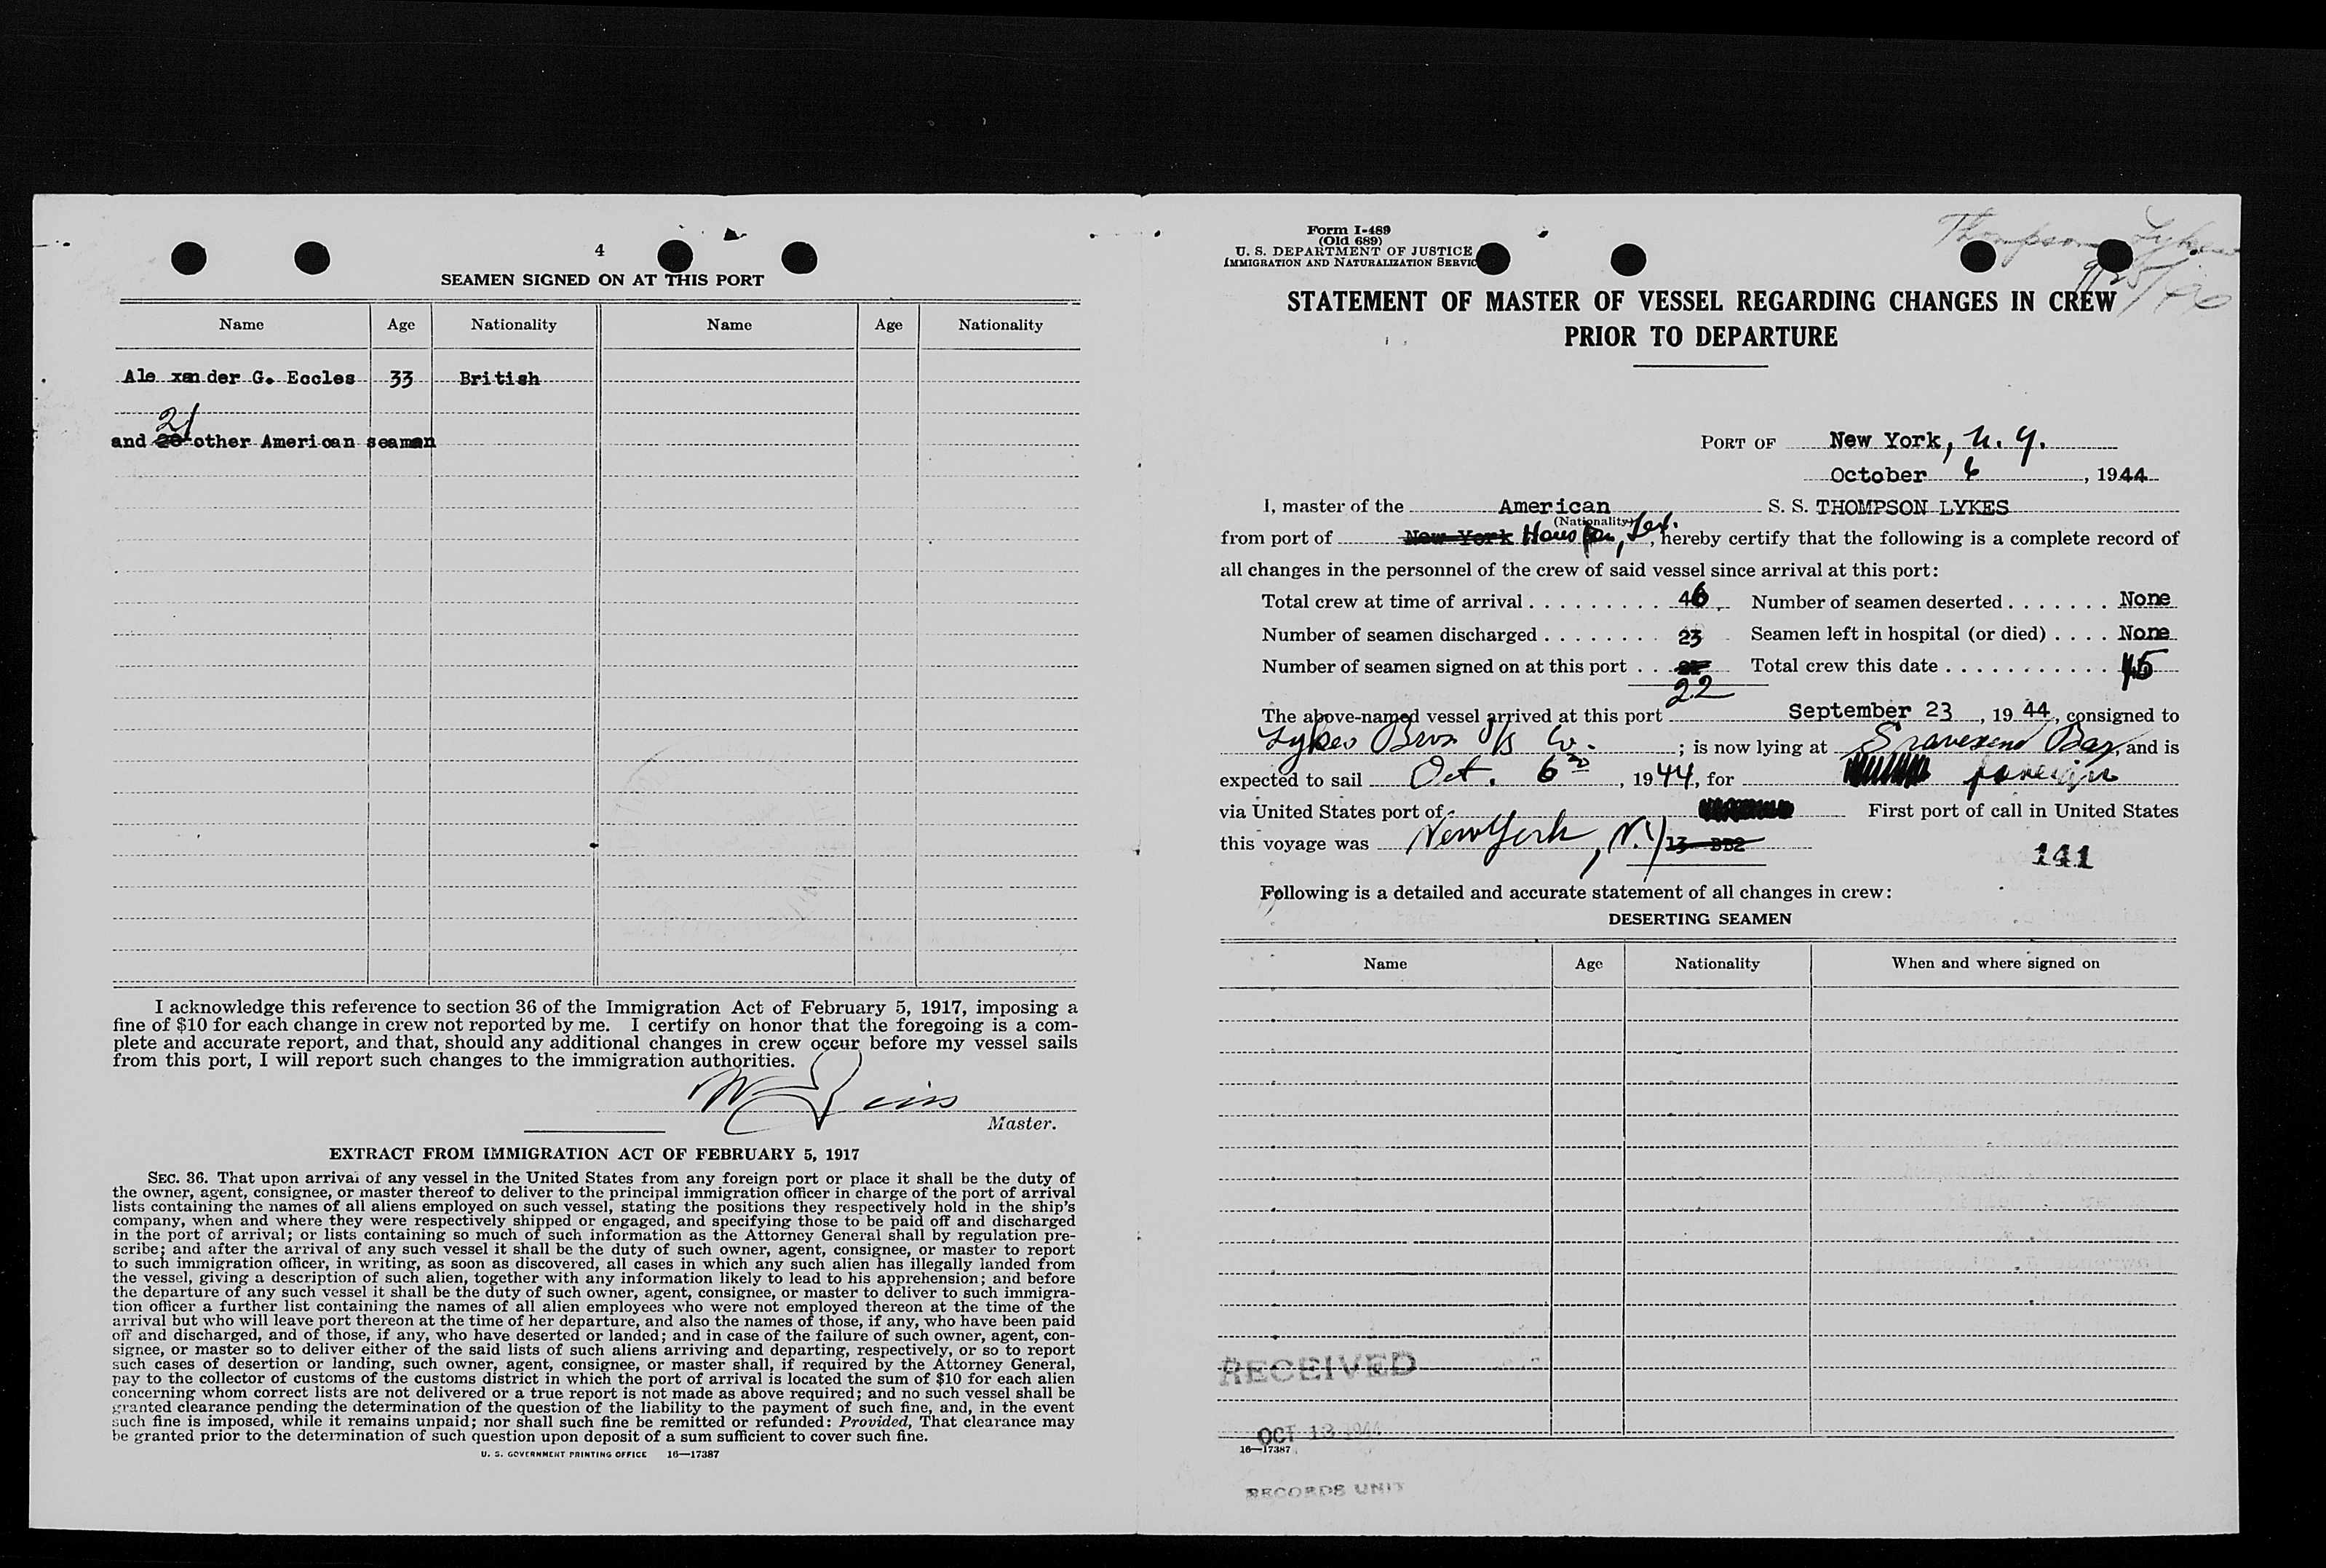 4
SEAMEN SIGNED ON AT THIS PORT
Name Age Nationality Name Age Nationality
Ale xander G. Eccles 33 British
21
and 20 other American seaman
I acknowledge this reference to section 36 of the Immigration Act of February 5, 1917, imposing a
fine of $10 for each change in crew not reported by me. I certify on honor that the foregoing is a com-
plete and accurate report, and that, should any additional changes in crew occur before my vessel sails
from this port, I will report such changes to the immigration authorities.
Master.
EXTRACT FROM IMMIGRATION ACT OF FEBRUARY 5, 1917
SEC. 36. That upon arrival of any vessel in the United States from any foreign port or place it shall be the duty of
the owner, agent, consignee, or master thereof to deliver to the principal immigration officer in charge of the port of arrival
lists containing the names of all aliens employed on such vessel, stating the positions they respectively hold in the ship's
company, when and where they were respectively shipped or engaged, and specifying those to be paid off and discharged
in the port of arrival; or lists containing so much of such information as the Attorney General shall by regulation pre-
scribe; and after the arrival of any such vessel it shall be the duty of such owner, agent, consignee, or master to report
to such immigration officer, in writing, as soon as discovered, all cases in which any such alien has illegally landed from
the vessel, giving a description of such alien, together with any information likely to lead to his apprehension; and before
the departure of any such vessel it shall be the duty of such owner, agent, consignee, or master to deliver to such immigra-
tion officer a further list containing the names of all alien employees who were not employed thereon at the time of the
arrival but who will leave port thereon at the time of her departure, and also the names of those, if any, who have been paid
off and discharged, and of those, if any, who have deserted or landed; and in case of the failure of such owner, agent, con-
signee, or master so to deliver either of the said lists of such aliens arriving and departing, respectively, or so to report
such cases of desertion or landing, such owner, agent, consignee, or master shall, if required by the Attorney General,
pay to the collector of customs of the customs district in which the port of arrival is located the sum of $10 for each alien
concerning whom correct lists are not delivered or a true report is not made as above required; and no such vessel shall be
granted clearance pending the determination of the question of the liability to the payment of such fine, and, in the event
such fine is imposed, while it remains unpaid; nor shall such fine be remitted or refunded: Provided, That clearance may
be granted prior to the determination of such question upon deposit of a sum sufficient to cover such fine.
U. S. GOVERNMENT PRINTING OFFICE 16—17387
Form I-489
(Old 689)
U. S. DEPARTMENT OF JUSTICE
IMMIGRATION AND NATURALIZATION SERVIC
Thompson Lykes
STATEMENT OF MASTER OF VESSEL REGARDING CHANGES IN CREW
PRIOR TO DEPARTURE
PORT OF New York, N. Y.
October 6, 1944
I, master of the American S. S. THOMPSON LYKES
(Nationality)
from port of New York Houston, Tex., hereby certify that the following is a complete record of
all changes in the personnel of the crew of said vessel since arrival at this port:
Total crew at time of arrival . . . . . . . . . 46 Number of seamen deserted . . . . . . . None
Number of seamen discharged . . . . . . . . 23 Seamen left in hospital (or died) . . . . None
Number of seamen signed on at this port . . Total crew this date . . . . . . . . . . . 45
22
The above-named vessel arrived at this port September 23, 1944, consigned to
Lykes Bros S/S Co. ; is now lying at Gravesend Bay, and is
expected to sail Oct. 6th, 1944, for foreign
via United States port of First port of call in United States
this voyage was New York, N.Y 13 BB2
141
Following is a detailed and accurate statement of all changes in crew:
DESERTING SEAMEN
Name Age Nationality When and where signed on
RECEIVED
OCT 13 1944
16—17387
RECORDS UNIT